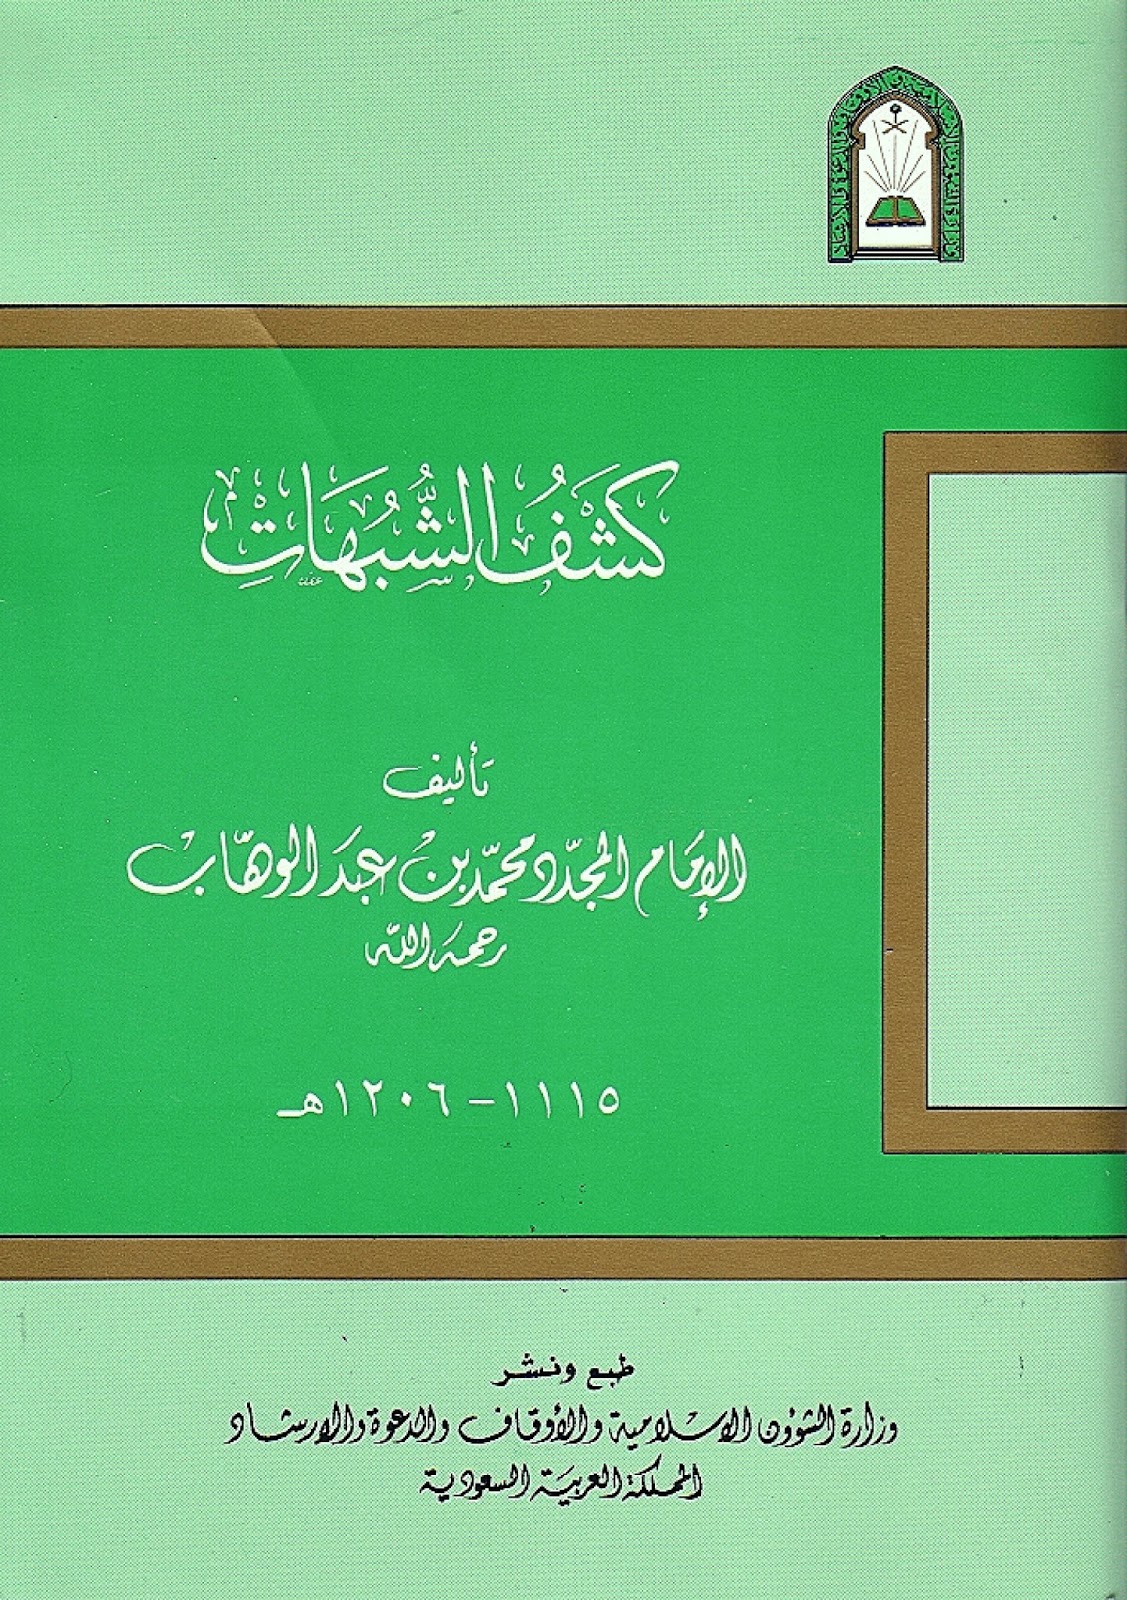 كَشْفُ الشُّبُهَاتِ
تأليف
الإمَام المجدّد محمّد بن عَبد الوهّاب
رحمَه اللّه
١١١٥ - ١٢٠٦هـ
طبع ونشر
وزارة الشؤون الإسلامية والأوقاف والدعوة والإرشاد
المملكة العربية السعودية